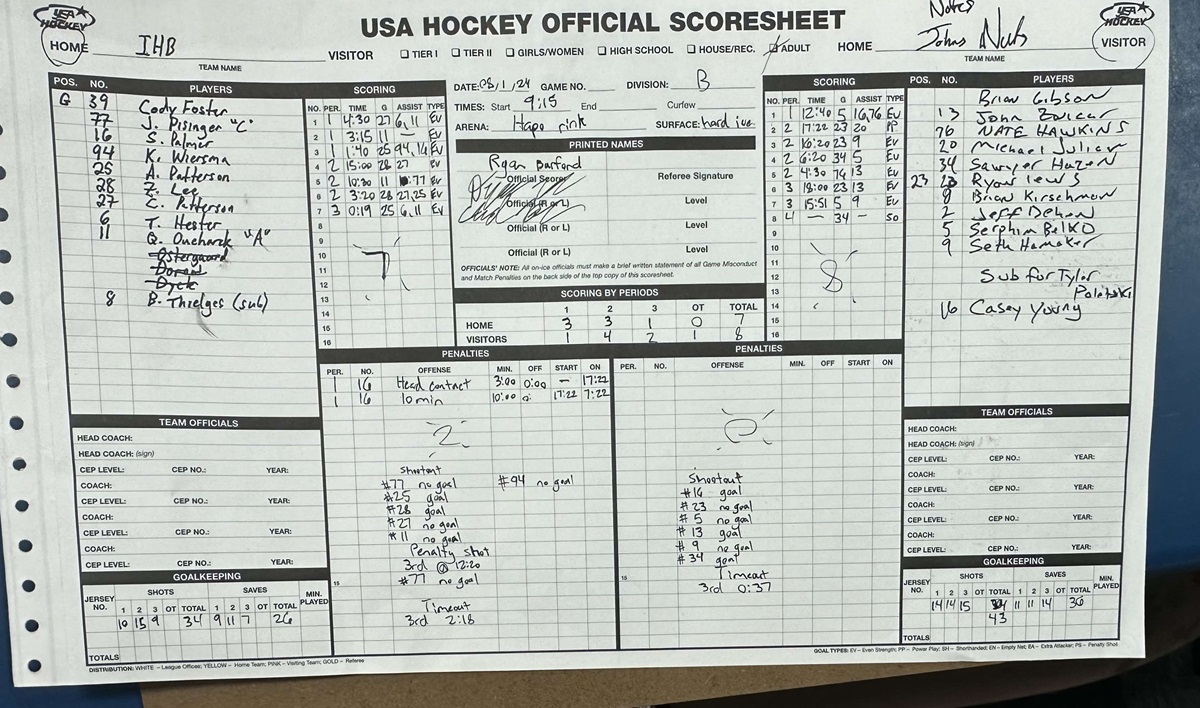 USA HOCKEY OFFICIAL SCORESHEET
USA HOCKEY
HOME IHB
TEAM NAME
VISITOR ☐ TIER I ☐ TIER II ☐ GIRLS/WOMEN ☐ HIGH SCHOOL ☐ HOUSE/REC. ☑ ADULT HOME
Notes
Johns Nuts
TEAM NAME
USA HOCKEY
VISITOR
POS. NO. PLAYERS
G 39 Cody Foster
77 J. Pisinger "C"
16 S. Palmer
94 K. Wiersma
25 A. Patterson
28 Z. Lee
27 C. Patterson
6 T. Hester
11 Q. Oncharck "A"
Ostergaard
Doran
Dyck
8 B. Thielges (sub)
SCORING
NO. PER. TIME G ASSIST TYPE
1 1 4:30 27 6,11 EV
2 1 3:15 11 — EV
3 1 1:40 25 94,16 EV
4 2 15:00 28 27 EV
5 2 10:30 11 77 EV
6 2 3:20 28 27,25 EV
7 3 0:19 25 6,11 EV
8
9
10
11 7
12
13
14
15
16
DATE: 08/1/24 GAME NO. DIVISION: B
TIMES: Start 9:15 End Curfew
ARENA: Hapo rink SURFACE: hard ice
PRINTED NAMES
Ryan Barford
Official Scorer Referee Signature
Official (R or L) Level
Official (R or L) Level
Official (R or L) Level
OFFICIALS' NOTE: All on-ice officials must make a brief written statement of all Game Misconduct
and Match Penalties on the back side of the top copy of this scoresheet.
SCORING BY PERIODS
1 2 3 OT TOTAL
HOME 3 3 1 0 7
VISITORS 1 4 2 1 8
SCORING
NO. PER. TIME G ASSIST TYPE
1 1 12:40 5 16,76 EV
2 2 17:22 23 20 PP
3 2 16:20 23 9 EV
4 2 6:20 34 5 EV
5 2 4:30 76 13 EV
6 3 18:00 23 13 EV
7 3 15:51 5 9 EV
8 4 — 34 — SO
9
10
11 8
12
13
14
15
16
POS. NO. PLAYERS
Brian Gibson
13 John
76 NATE HAWKINS
20 Michael Julian
34 Sawyer Hazen
23 Ryan Lewis
8 Brian Kirschman
2 Jeff Dehan
5 Serphim Belko
9 Seth Hamaker
Sub for Tylor
Politski
16 Casey Young
PENALTIES
PER. NO. OFFENSE MIN. OFF START ON
1 16 Head contact 3:00 0:00 — 17:22
1 16 10 min 10:00 0: 17:22 7:22
2
Shootout
#77 no goal #94 no goal
#25 goal
#28 goal
#27 no goal
#11 no goal
Penalty Shot
3rd @ 12:20
#77 no goal
15
Timeout
3rd 2:18
PENALTIES
PER. NO. OFFENSE MIN. OFF START ON
0
Shootout
#16 goal
#23 no goal
#5 no goal
#13 goal
#9 no goal
#34 goal
15
Timeout
3rd 0:37
TEAM OFFICIALS
HEAD COACH:
HEAD COACH: (sign)
CEP LEVEL: CEP NO.: YEAR:
COACH:
CEP LEVEL: CEP NO.: YEAR:
COACH:
CEP LEVEL: CEP NO.: YEAR:
COACH:
CEP LEVEL: CEP NO.: YEAR:
GOALKEEPING
JERSEY NO. SHOTS SAVES MIN. PLAYED
1 2 3 OT TOTAL 1 2 3 OT TOTAL
10 15 9 34 9 11 7 26
TOTALS
TEAM OFFICIALS
HEAD COACH:
HEAD COACH: (sign)
CEP LEVEL: CEP NO.: YEAR:
COACH:
CEP LEVEL: CEP NO.: YEAR:
COACH:
CEP LEVEL: CEP NO.: YEAR:
COACH:
CEP LEVEL: CEP NO.: YEAR:
GOALKEEPING
JERSEY NO. SHOTS SAVES MIN. PLAYED
1 2 3 OT TOTAL 1 2 3 OT TOTAL
14 14 15 11 11 14 36
43
TOTALS
DISTRIBUTION: WHITE – League Offices; YELLOW – Home Team; PINK – Visiting Team; GOLD – Referee
GOAL TYPES: EV – Even Strength; PP – Power Play; SH – Shorthanded; EN – Empty Net; EA – Extra Attacker; PS – Penalty Shot